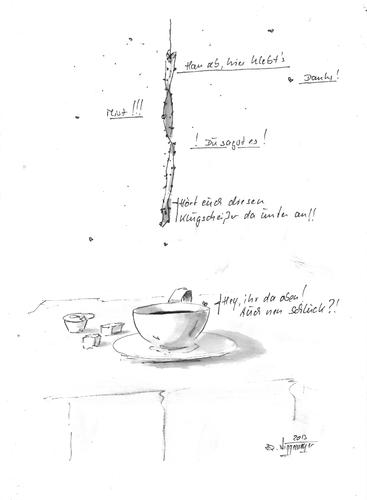 Hau ab, hier klebt's
Danke!
Mist!!!
! Du sagst es!
Hört euch diesen
Klugscheißer da unten an!!
Hey, ihr da oben!
Auch nen Schluck?!
2013